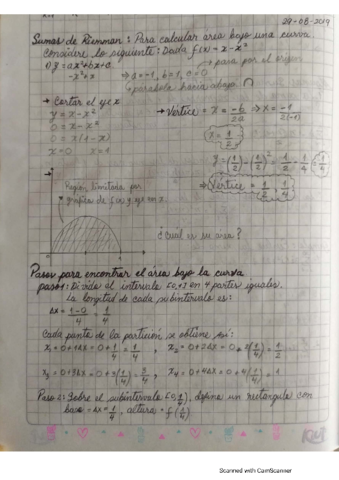 29-08-2019
Sumas de Riemman: Para calcular area bajo una curva
considere lo siguiente: Dada f(x) = x - x²
1) y = ax² + bx + c → pasa por el origen
-x² + x ⇒ a = -1, b = 1, c = 0
parabola hacia abajo ∩
→ Cortar el eje x
y = x - x²
0 = x - x²
0 = x(1 - x)
x = 0 x = 1
→ Vértice = x = -b/2a ⇒ x = -1/2(-1)
x = 1/2
y = (1/2) - (1/2)² = 1/2 - 1/4 = 1/4
⇒ Vértice = 1/2, 1/4
Región limitada por
grafica de f(x) y eje en x
¿Cual es su area?
Pasos para encontrar el área bajo la curva
paso 1: Divida el intervalo [0,1] en 4 partes iguales.
La longitud de cada subintervalo es:
Δx = 1-0/4 = 1/4
Cada punto de la partición se obtiene así:
x₁ = 0 + 1Δx = 0 + 1/4 = 1/4 , x₂ = 0 + 2Δx = 0 + 2(1/4) = 1/2
x₃ = 0 + 3Δx = 0 + 3(1/4) = 3/4 , x₄ = 0 + 4Δx = 0 + 4(1/4) = 1
Paso 2: Sobre el subintervalo [0, 1/4], defina un rectangulo con
base = Δx = 1/4, altura = f(1/4)
Scanned with CamScanner